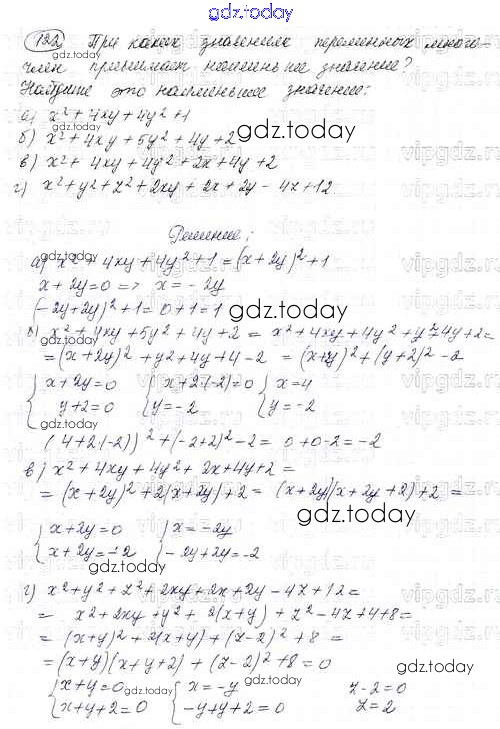 gdz.today
122 При каких значениях переменных много-
член принимает наименьшее значение?
gdz.today
Найдите это наименьшее значение:
а) x² + 4xy + 4y² + 1
б) x² + 4xy + 5y² + 4y + 2
gdz.today
в) x² + 4xy + 4y² + 2x + 4y + 2
г) x² + y² + z² + 2xy + 2x + 2y - 4z + 12
gdz.today
Решение:
gdz.today
а) x² + 4xy + 4y² + 1 = (x + 2y)² + 1
x + 2y = 0 => x = -2y
(-2y + 2y)² + 1 = 0 + 1 = 1
gdz.today
б) x² + 4xy + 5y² + 4y + 2 = x² + 4xy + 4y² + y² + 4y + 2 =
= (x + 2y)² + y² + 4y + 4 - 2 = (x + y)² + (y + 2)² - 2
{ x + 2y = 0 { x + 2·(-2) = 0 { x = 4
y + 2 = 0 y = -2 y = -2
gdz.today
(4 + 2·(-2))² + (-2 + 2)² - 2 = 0 + 0 - 2 = -2
в) x² + 4xy + 4y² + 2x + 4y + 2 =
= (x + 2y)² + 2(x + 2y) + 2 = (x + 2y)(x + 2y + 2) + 2 =
gdz.today
{ x + 2y = 0 { x = -2y
x + 2y = -2 -2y + 2y = -2
gdz.today
г) x² + y² + z² + 2xy + 2x + 2y - 4z + 12 =
= x² + 2xy + y² + 2(x + y) + z² - 4z + 4 + 8 =
= (x + y)² + 2(x + y) + (z - 2)² + 8 =
= (x + y)(x + y + 2) + (z - 2)² + 8 = 0
gdz.today
{ x + y = 0 { x = -y z - 2 = 0
gdz.today
x + y + 2 = 0 -y + y + 2 = 0 z = 2